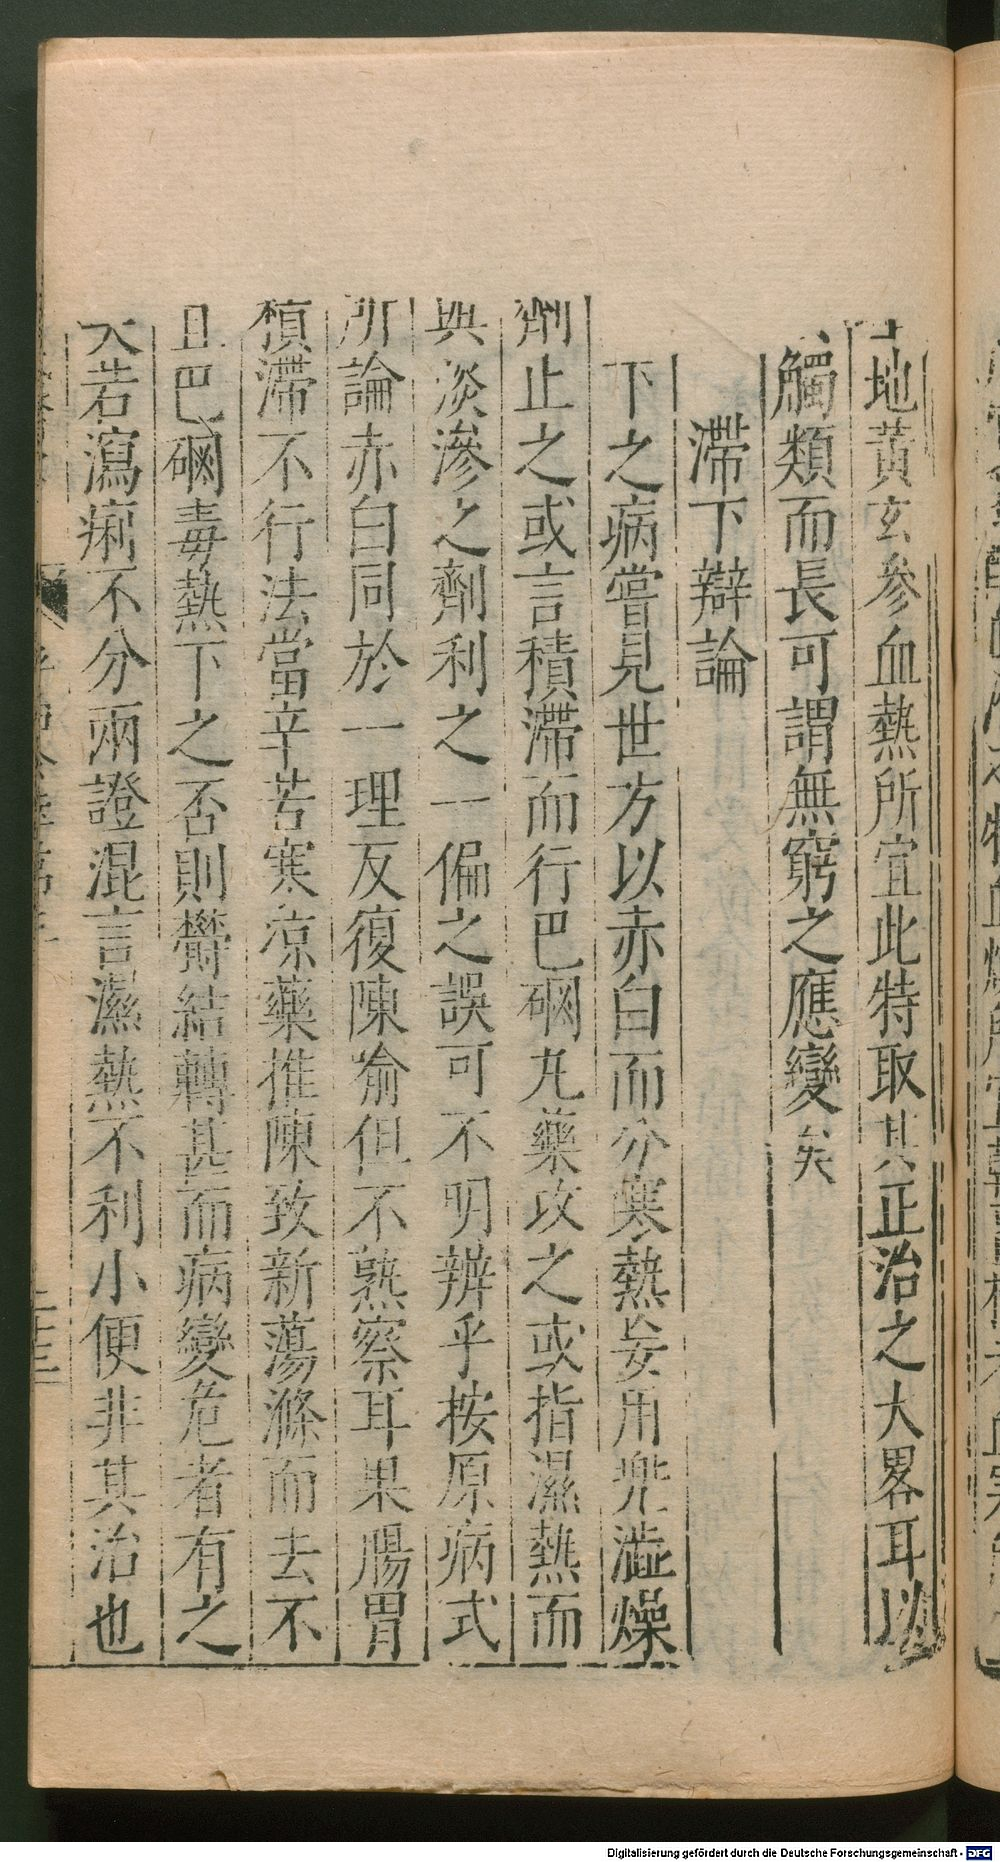 地黃玄參血熱所宜此特取其正治之大畧耳以
觸類而長可謂無窮之應變矣
滯下辯論
下之病嘗見世方以赤白而分寒熱妄用兠澁燥
劑止之或言積滯而行巴硇丸藥攻之或指濕熱而
與淡滲之劑利之一偏之誤可不明辨乎按原病式
所論赤白同於一理反復陳喻但不熟察耳果腸胃
積滯不行法當辛苦寒凉藥推陳致新蕩滌而去不
且巴硇毒熱下之否則欝結轉甚而病變危者有之
矣若瀉痢不分兩證混言濕熱不利小便非其治也
Digitalisierung gefördert durch die Deutsche Forschungsgemeinschaft - DFG